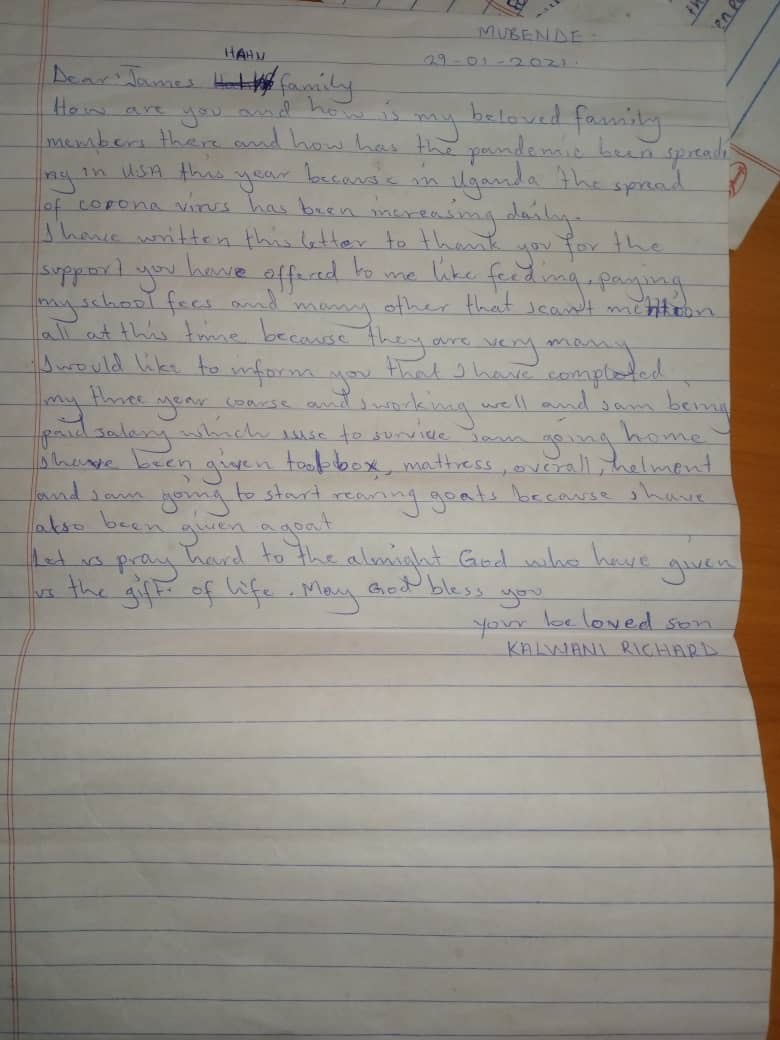 MUBENDE.
29-01-2021.
HAHN
Dear: James family
How are you and how is my beloved family
members there and how has the pandemic been spreadi
ng in USA this year because in Uganda the spread
of corona virus has been increasing daily.
I have written this letter to thank you for the
support you have offered to me like feeding, paying
my school fees and many other that I can't mention
all at this time because they are very many
I would like to inform you that I have completed
my three year coarse and I working well and I am being
paid salary which I use to survive I am going home
I have been given toolbox, mattress, overall, helment
and I am going to start rearing goats because I have
also been given a goat
Let us pray hard to the almight God who have given
us the gift. of life. May God bless you
your beloved son
KALWANI RICHARD